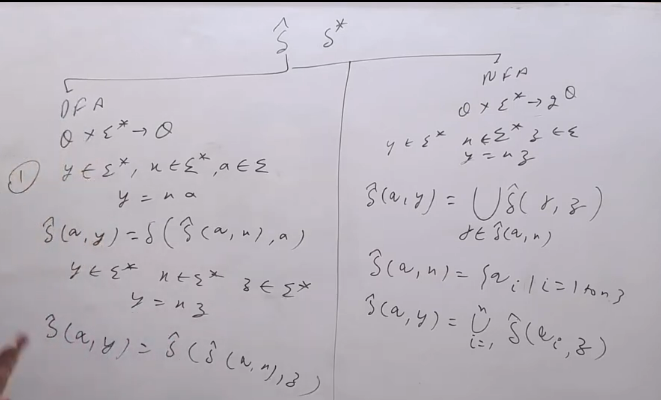 δ̂ δ*
DFA
Q × Σ* → Q
① y ∈ Σ*, x ∈ Σ*, a ∈ Σ
y = x a
δ̂(q, y) = δ(δ̂(q, x), a)
y ∈ Σ* x ∈ Σ* z ∈ Σ*
y = x z
δ̂(q, y) = δ̂(δ̂(q, x), z)
NFA
Q × Σ* → 2^Q
y ∈ Σ* x ∈ Σ* z ∈ Σ
y = x z
δ̂(q, y) = ⋃ δ̂(r, z)
r ∈ δ̂(q, x)
δ̂(q, x) = {q_i | i = 1 to n}
δ̂(q, y) = ⋃_{i=1}^{n} δ̂(q_i, z)